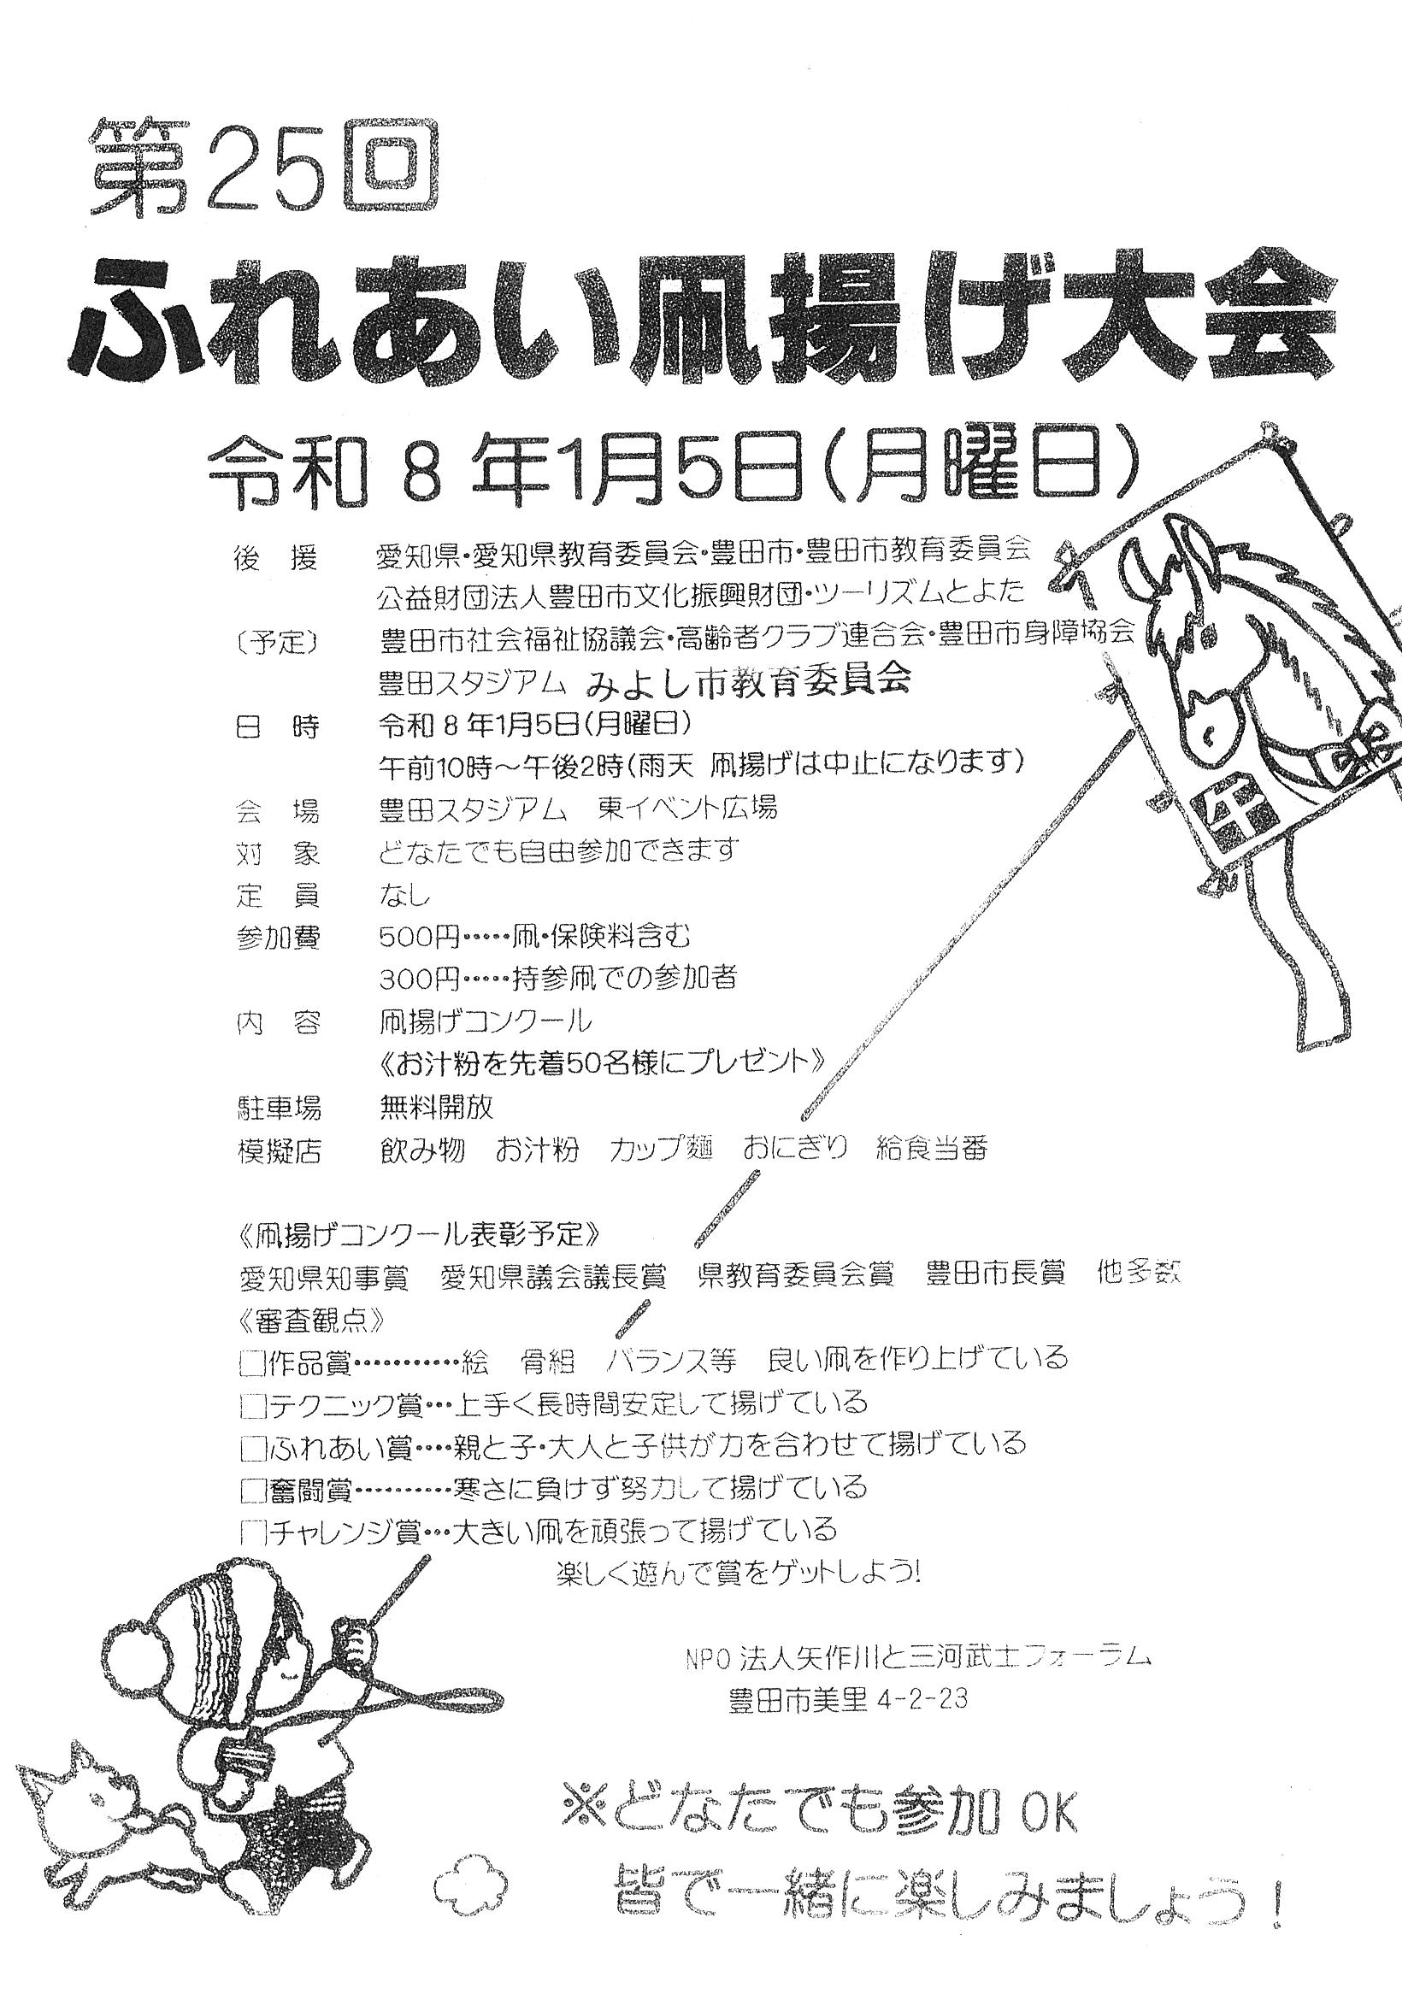 第25回
ふれあい凧揚げ大会
令和 8 年1月5日(月曜日)
後　援　愛知県・愛知県教育委員会・豊田市・豊田市教育委員会
公益財団法人豊田市文化振興財団・ツーリズムとよた
(予定)　豊田市社会福祉協議会・高齢者クラブ連合会・豊田市身障協会
豊田スタジアム　みよし市教育委員会
日　時　令和 8 年1月5日(月曜日)
午前10時～午後2時(雨天 凧揚げは中止になります)
会　場　豊田スタジアム　東イベント広場
対　象　どなたでも自由参加できます
定　員　なし
参加費　500円・・・・・凧・保険料含む
300円・・・・・持参凧での参加者
内　容　凧揚げコンクール
《お汁粉を先着50名様にプレゼント》
駐車場　無料開放
模擬店　飲み物　お汁粉　カップ麺　おにぎり　給食当番
午
《凧揚げコンクール表彰予定》
愛知県知事賞　愛知県議会議長賞　県教育委員会賞　豊田市長賞　他多数
《審査観点》
□作品賞・・・・・・・・・・・絵　骨組　バランス等　良い凧を作り上げている
□テクニック賞・・・上手く長時間安定して揚げている
□ふれあい賞・・・・親と子・大人と子供が力を合わせて揚げている
□奮闘賞・・・・・・・・・・寒さに負けず努力して揚げている
□チャレンジ賞・・・大きい凧を頑張って揚げている
楽しく遊んで賞をゲットしよう!
NPO 法人矢作川と三河武士フォーラム
豊田市美里 4-2-23
※どなたでも参加 OK
皆で一緒に楽しみましょう!